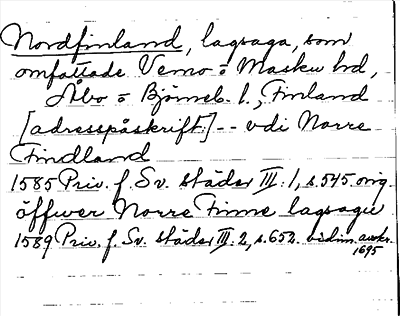 Nordfinland, lagsaga, som
omfattade Vemo o Masku hd,
Åbo o Björneb. l., Finland
[adresspåskrift:] -- vdi Norre
Findland
1585 Priv. f. Sv. städer III:1, s.545 orig.
öffwer Norre Finne lagsagu
1589 Priv. f. Sv. städer III:2, s.652. vidim. avskr.
1695